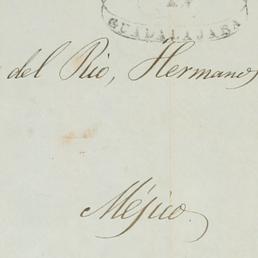 EN
GUADALAJARA
del Rio, Hermanos
Méjico.